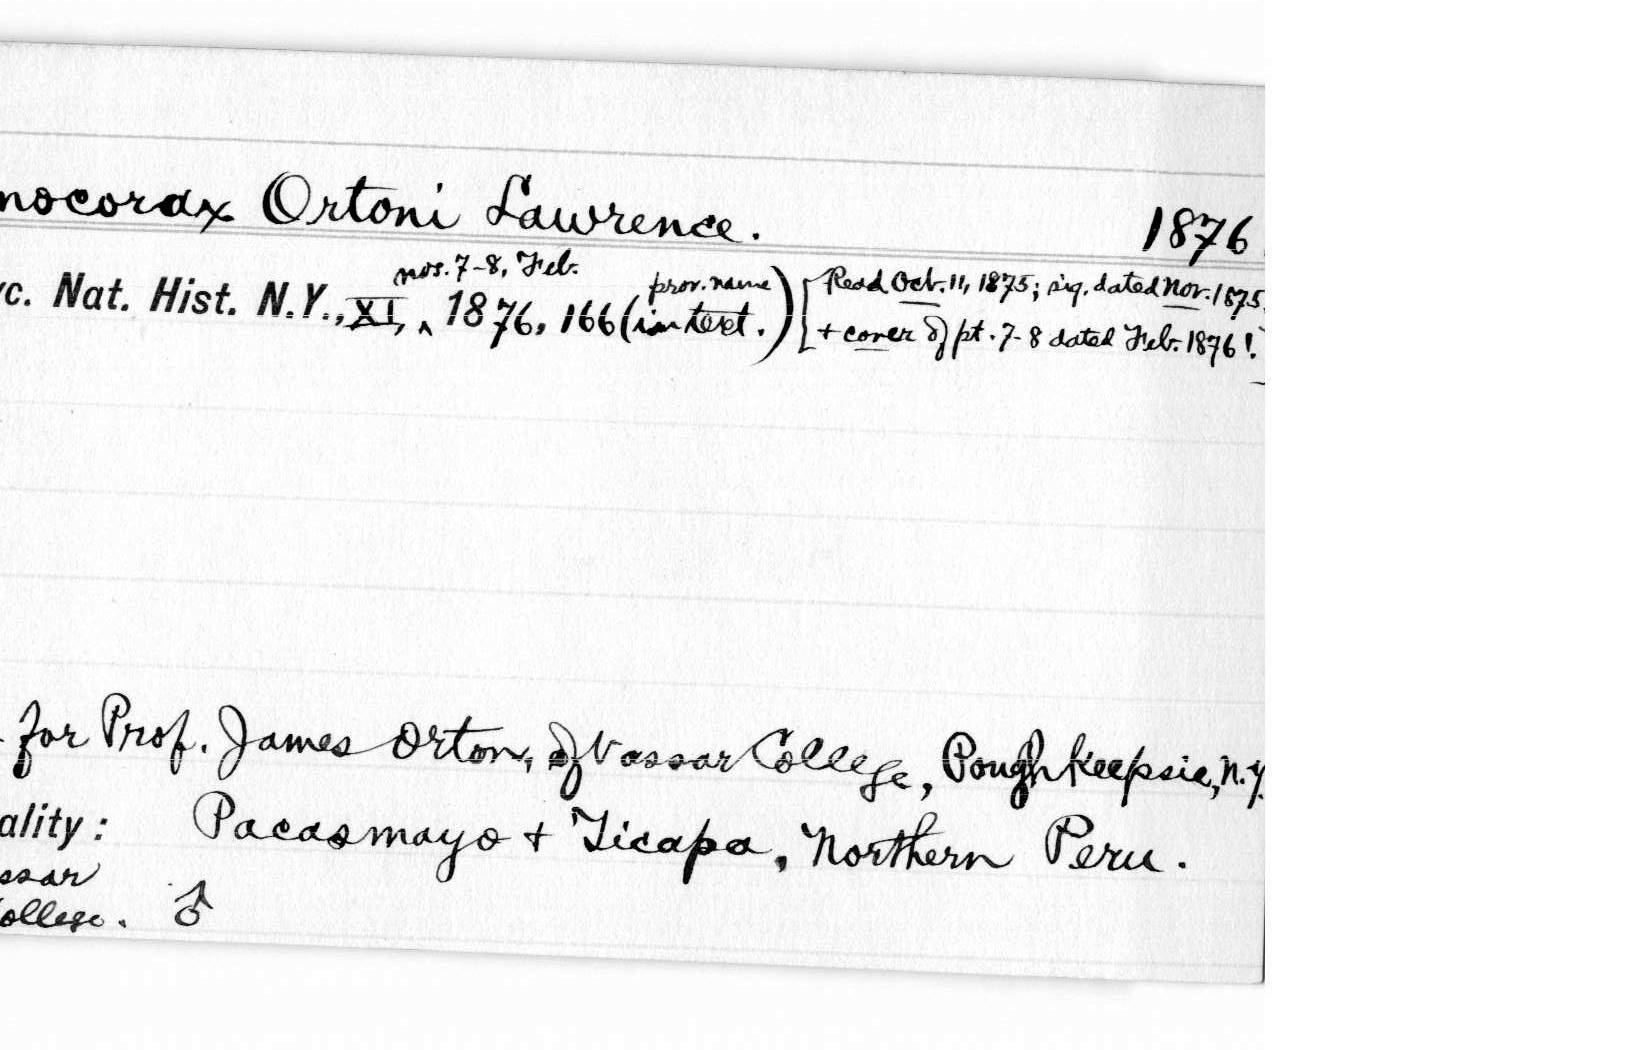 nocorax Ortoni Lawrence. 1876
yc. Nat. Hist. N.Y., XI, ^ nos. 7-8, Feb. 1876, 166 (prov. name in text.) [Read Oct. 11, 1875; sig. dated Nov. 1875,
+ cover of pt. 7-8 dated Feb. 1876!.
for Prof. James Orton, of Vassar College, Poughkeepsie, N.Y.
ality: Pacasmayo + Ticapa, Northern Peru.
ssar
ollege. ♂